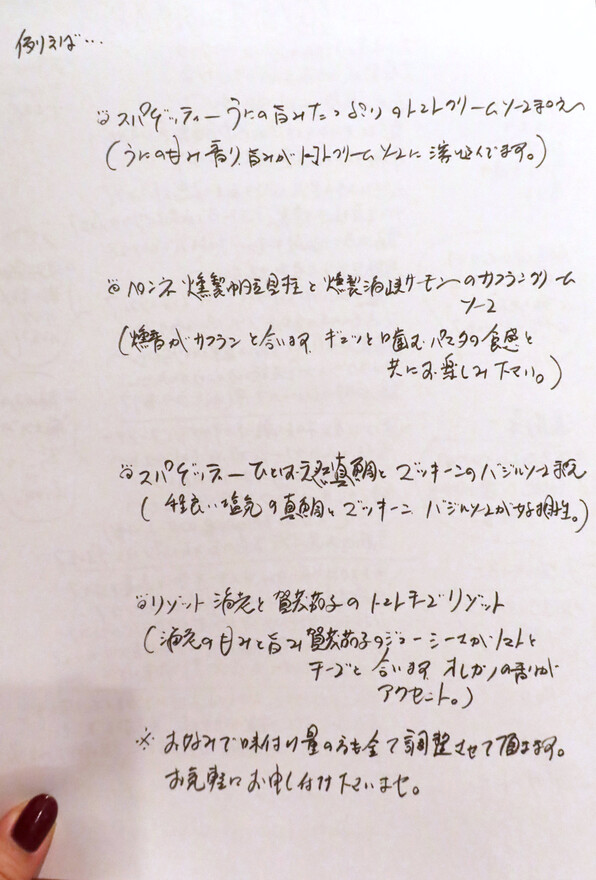 例えば…
スパゲッティー うにの旨みたっぷりのトマトクリームソースまぜ
(うにの甘み 香り 旨みがトマトクリームソースに溶け込んでます。)
ペンネ 燻製帆立貝柱と燻製海峡サーモンのサフランクリーム
ソース
(燻香がサフランと合います ギュッと噛むパスタの食感と
共にお楽しみ下さい。)
スパゲッティー ひとしお天然真鯛とズッキーニのバジルソースまぜ
(程良い塩気の真鯛とズッキーニ バジルソースが好相性。)
リゾット 海老と賀茂茄子のトマトチーズリゾット
(海老の甘みと旨み 賀茂茄子のジューシーさがトマトと
チーズと合います オレガノの香りが
アクセント。)
※ お好みで味付け 量の方も全て調整させて頂きます。
お気軽にお申し付け下さいませ。